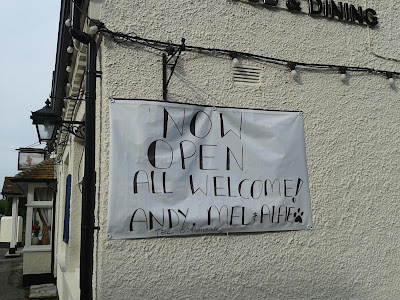 & DINING
NOW
OPEN
ALL WELCOME!
ANDY, MEL & ALFIE